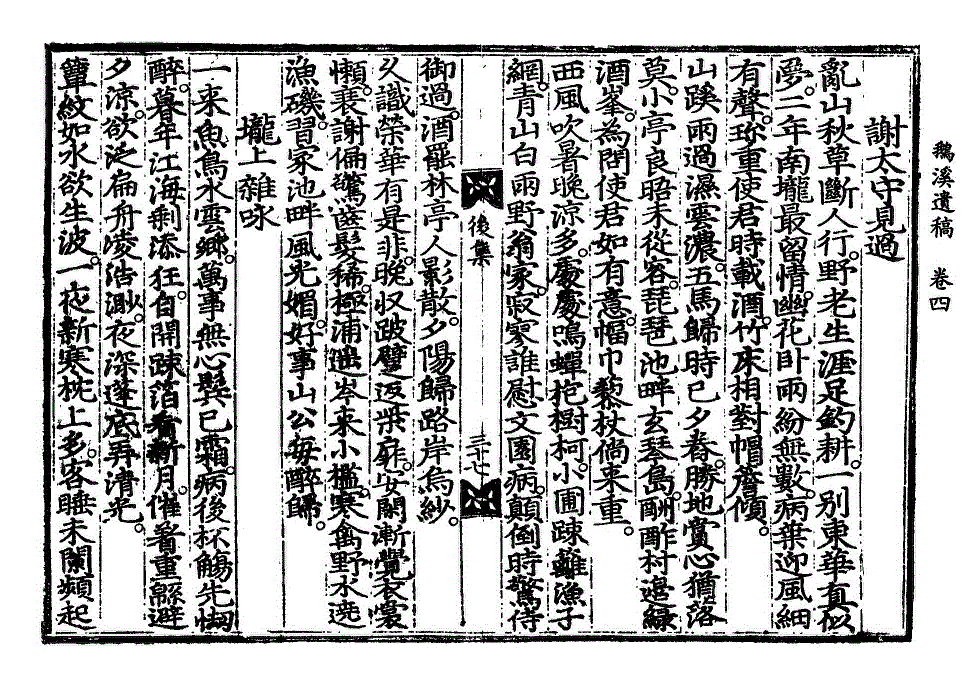 鵝溪遺稿 卷四
謝太守見過
亂山秋草斷人行。野老生涯足釣耕。一別東華眞似
夢。二年南壠最留情。幽花卧雨紛無數。病葉迎風細
有聲。珍重使君時載酒。竹床相對帽簷傾。
山蹊雨過濕雲濃。五馬歸時已夕舂。勝地賞心猶落
莫。小亭良晤未從容。琵琶池畔玄琴島。酬酢村邊綠
酒峯。爲問使君如有意。幅巾藜杖倘來重。
西風吹暑晩涼多。處處鳴蟬抱樹柯。小圃踈籬漁子
網。靑山白雨野翁家。寂寥誰慰文園病。顚倒時驚侍
後集
三十七
御過。酒罷林亭人影散。夕陽歸路岸烏紗。
久識榮華有是非。晩収跛躄返柴扉。安閑漸覺衣裳
懶。衰謝偏驚齒髮稀。極浦遙岑來小檻。寒禽野水遶
漁磯。習家池畔風光媚。好事山公每醉歸。
壠上雜咏
一來魚鳥水雲鄕。萬事無心鬂已霜。病後杯觴先㤼
醉。暮年江海剩添狂。自開踈箔看新月。催著重緜避
夕涼。欲泛扁舟凌浩渺。夜深蓬底弄淸光。
簟紋如水欲生波。一夜新寒枕上多。客睡未闌頻起